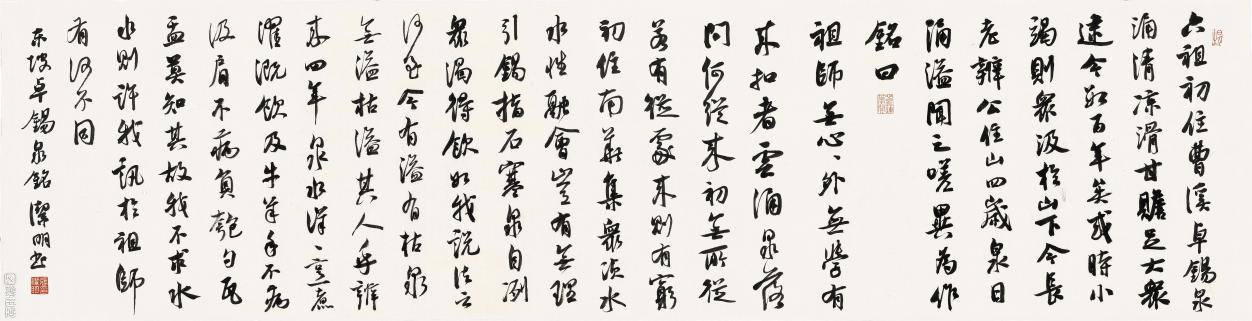 六祖初住曹溪卓錫泉
涌清涼滑甘贍足大衆
逮今數百年矣或時小
竭則衆汲於山下今長
老辯公住山四歲泉日
涌溢聞之嗟異為作
銘曰
祖師無心、外無學有
來扣者雲涌泉落
問何從來初無所從
若有從處來則有窮
初住南華集衆須水
水性融會豈有無理
引錫指石寒泉自冽
衆渴得飲如我說法云
何至今有溢有枯泉
無溢枯溢其人乎辯
來四年泉水洋、烹煮
濯溉飲及牛羊手不病
汲肩不病負匏勺瓦
盂莫知其故我不求水
水則許我訊於祖師
有何不同
東坡卓錫泉銘 潔明書